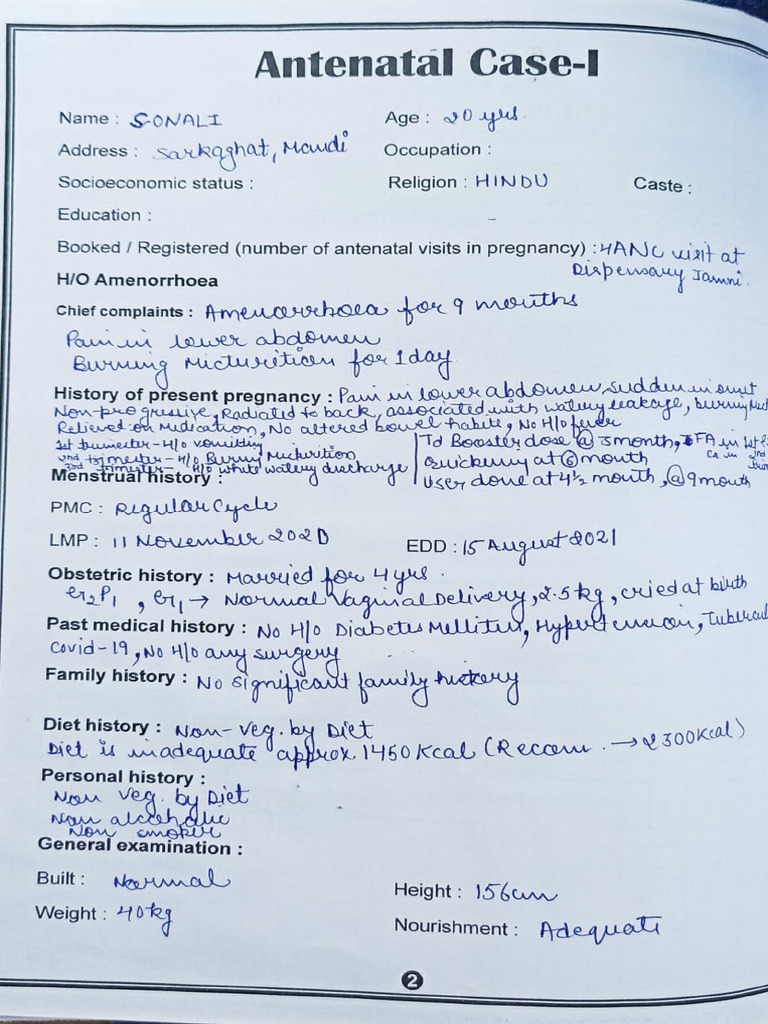 Antenatal Case-I
Name : SONALI Age : 20 yrs.
Address : Sarkaghat, Mandi Occupation :
Socioeconomic status : Religion : HINDU Caste :
Education : -
Booked / Registered (number of antenatal visits in pregnancy) : 4 ANC visit at
Dispensary Jamni.
H/O Amenorrhoea
Chief complaints : Amenorrhoea for 9 months
Pain in lower abdomen
Burning Micturition for 1 day
History of present pregnancy : Pain in lower abdomen, sudden in onset
Non-progressive, Radiated to back, associated with watery leakage, burning
Relieved on Medication, No altered bowel habits, No H/O fever
1st trimester - H/O vomiting Td Booster dose @ 3 month, IFA in 1st
2nd trimester - H/O Burning Micturition Quickening at 6 month CA in 2nd
3rd trimester - H/O white watery discharge User done at 4½ month, @ 9 month
Menstrual history :
PMC : Regular Cycle
LMP : 11 November 2020 EDD : 15 August 2021
Obstetric history : Married for 4 yrs.
G2P1, G1 → Normal Vaginal Delivery, 2.5 kg, cried at birth
Past medical history : No H/O Diabetes Mellitus, Hypertension, Tubercul
Covid-19, No H/O any surgery
Family history : No significant family history
Diet history : Non-veg. by Diet
Diet is inadequate approx 1450 Kcal (Recom. → 2300 Kcal)
Personal history :
Non veg. by Diet
Non alcoholic
Non smoker
General examination :
Built : Normal Height : 156 cm
Weight : 40 kg Nourishment : Adequate
2